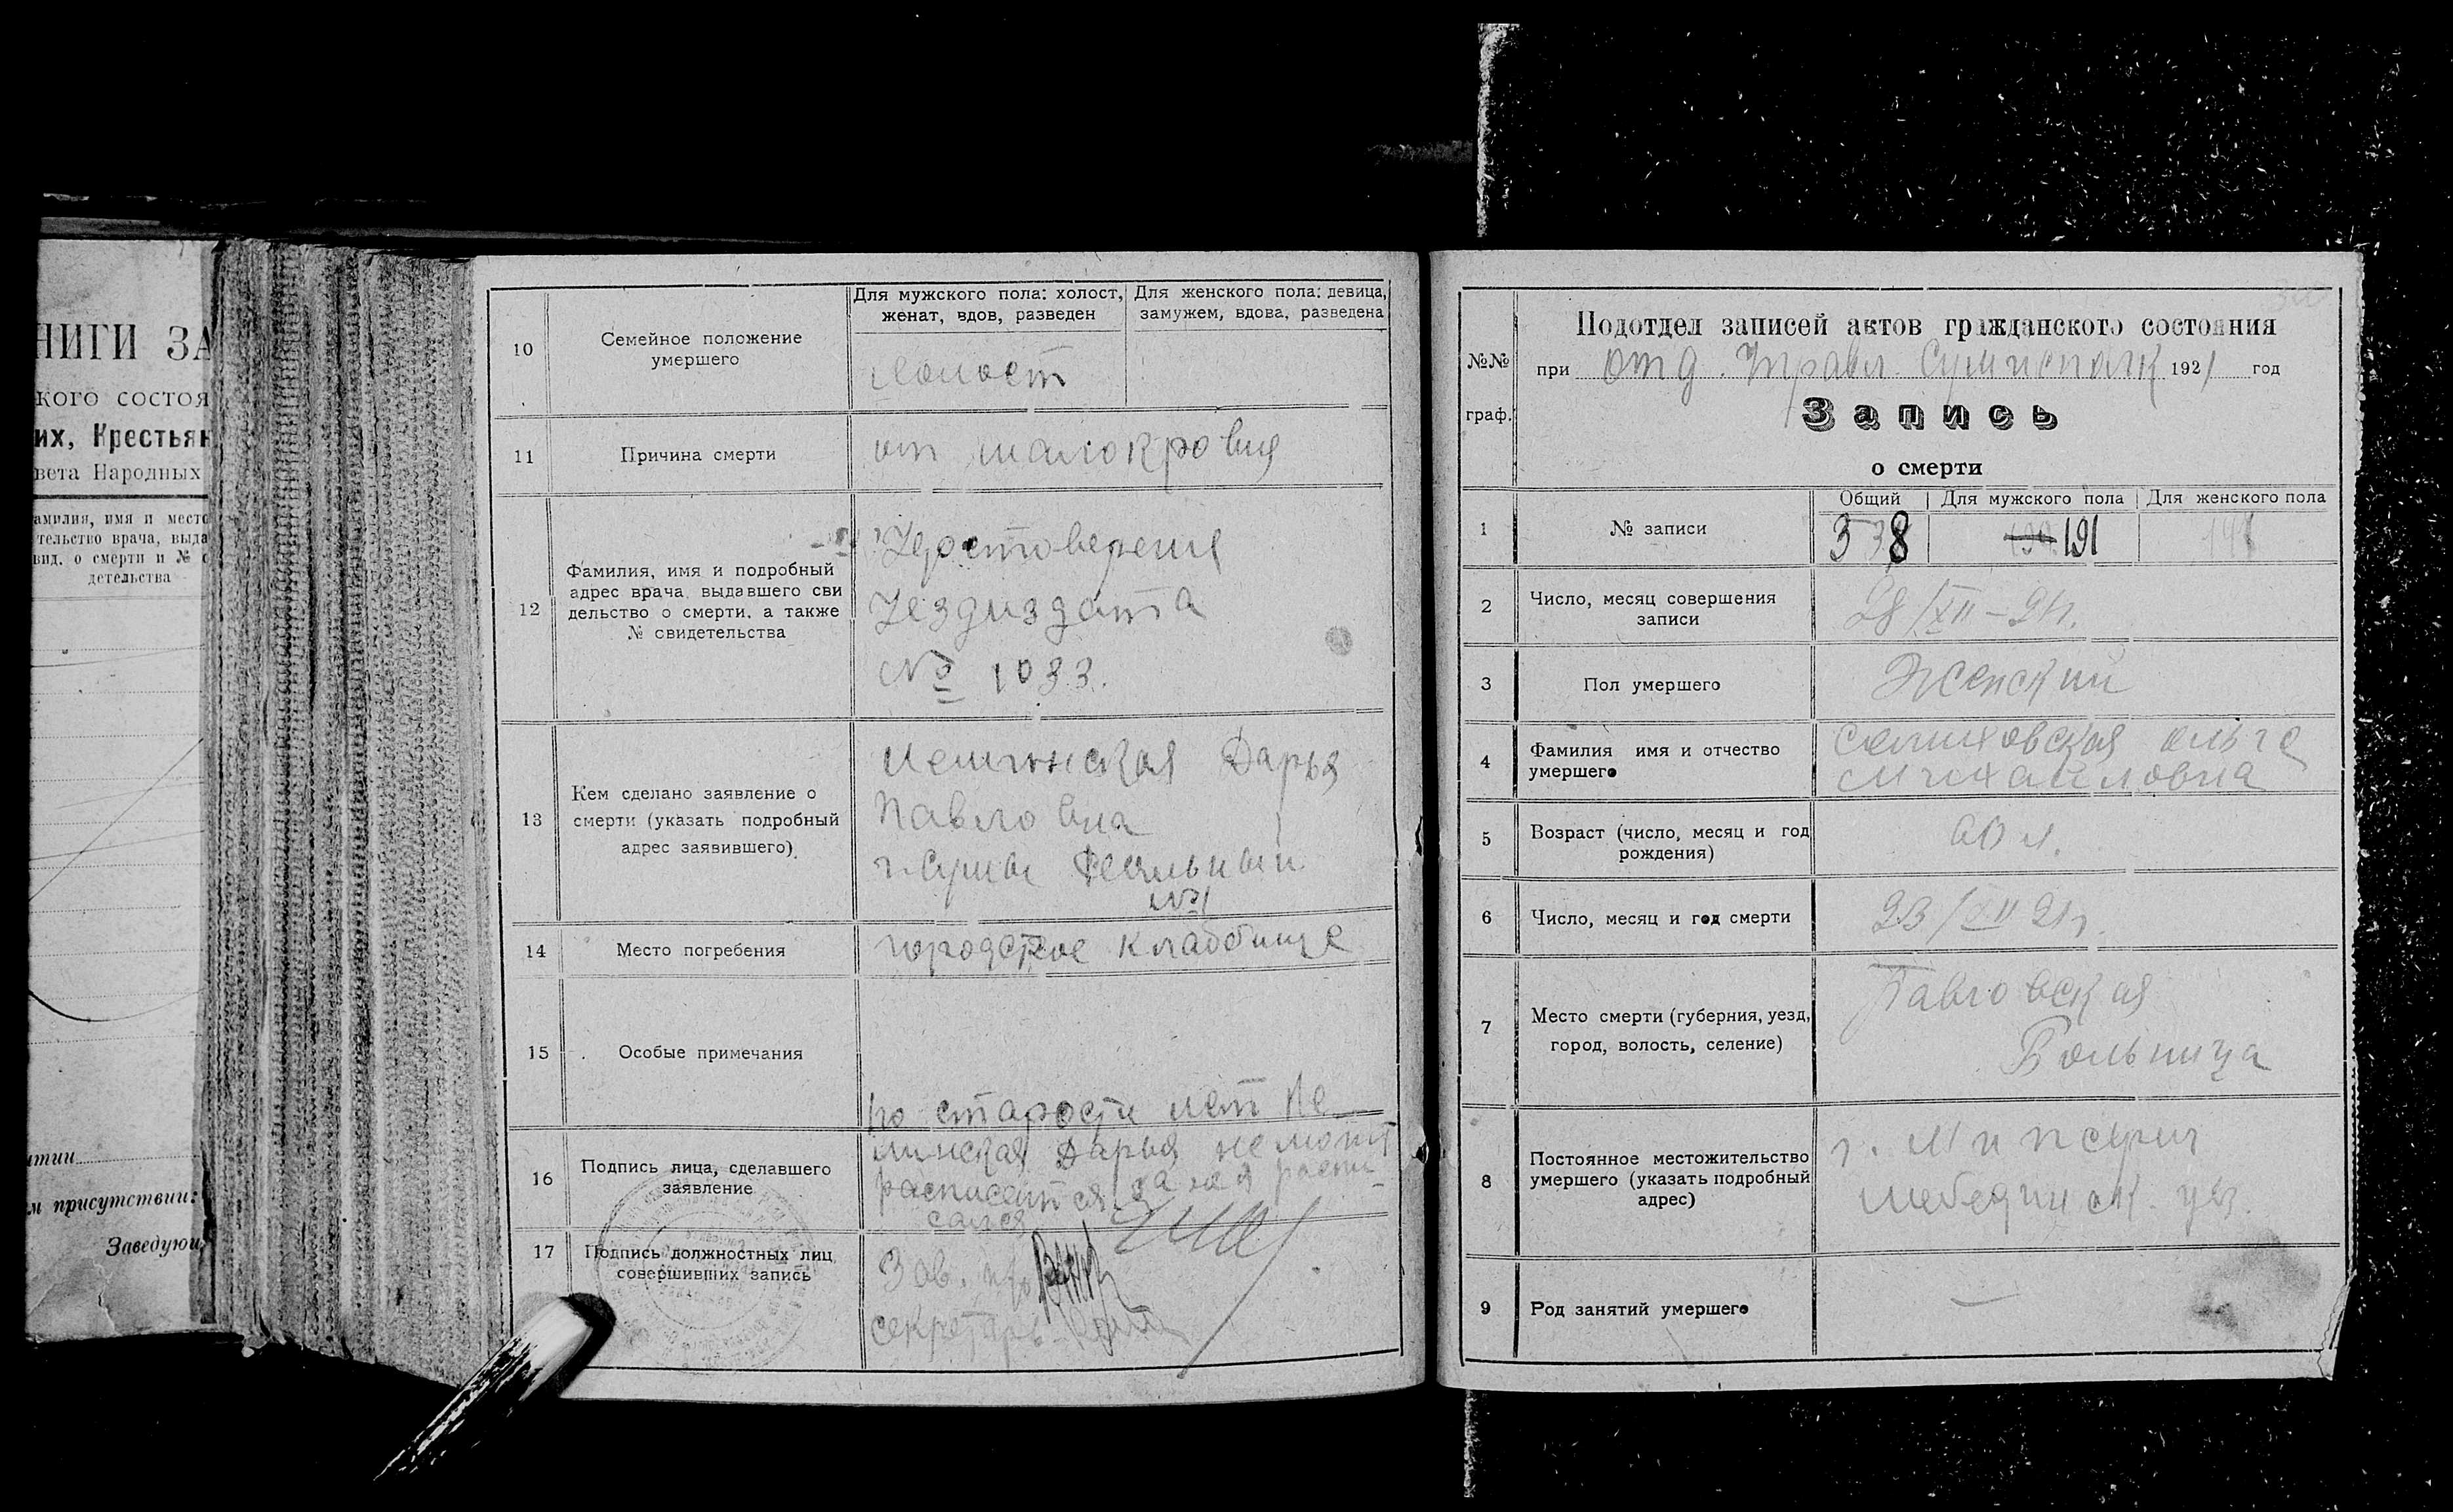 НИГИ ЗА
кого состоя
их, Крестьян
вета Народных
амилия, имя и место
тельство врача, выда
вид. о смерти и № с
детельства
м присутствии:
Заведую
10
Семейное положение
умершего
Для мужского пола: холост,
женат, вдов, разведен
Для женского пола: девица,
замужем, вдова, разведена
холост
11
Причина смерти
от малокровия
12
Фамилия, имя и подробный
адрес врача, выдавшего сви
дельство о смерти, а также
№ свидетельства
Удостоверения
Уездиздата
№ 1033.
13
Кем сделано заявление о
смерти (указать подробный
адрес заявившего).
Дарья
Павловна
г. Сумы
№1
14
Место погребения
городское кладбище
15
Особые примечания
16
Подпись лица, сделавшего
заявление
по старости лет Ле
минская Дарья не может
расписаться за нея распи
сался
17
Подпись должностных лиц,
совершивших запись
Зав.
секретарь
№№
граф.
Подотдел записей актов гражданского состояния
при отд. Управл. 1921 год
Запись
о смерти
1
№ записи
Общий
Для мужского пола
Для женского пола
338
191
2
Число, месяц совершения
записи
28/XII-21г.
3
Пол умершего
Женский
4
Фамилия имя и отчество
умершего
Ольга
Михайловна
5
Возраст (число, месяц и год
рождения)
60 л.
6
Число, месяц и год смерти
23/XII 21г.
7
Место смерти (губерния, уезд,
город, волость, селение)
Павловская
Больница
8
Постоянное местожительство
умершего (указать подробный
адрес)
лебединск. уез.
9
Род занятий умершего
—